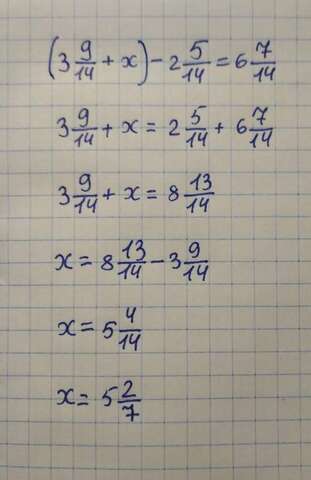 (3 9/14 + x) - 2 5/14 = 6 7/14
3 9/14 + x = 2 5/14 + 6 7/14
3 9/14 + x = 8 13/14
x = 8 13/14 - 3 9/14
x = 5 4/14
x = 5 2/7